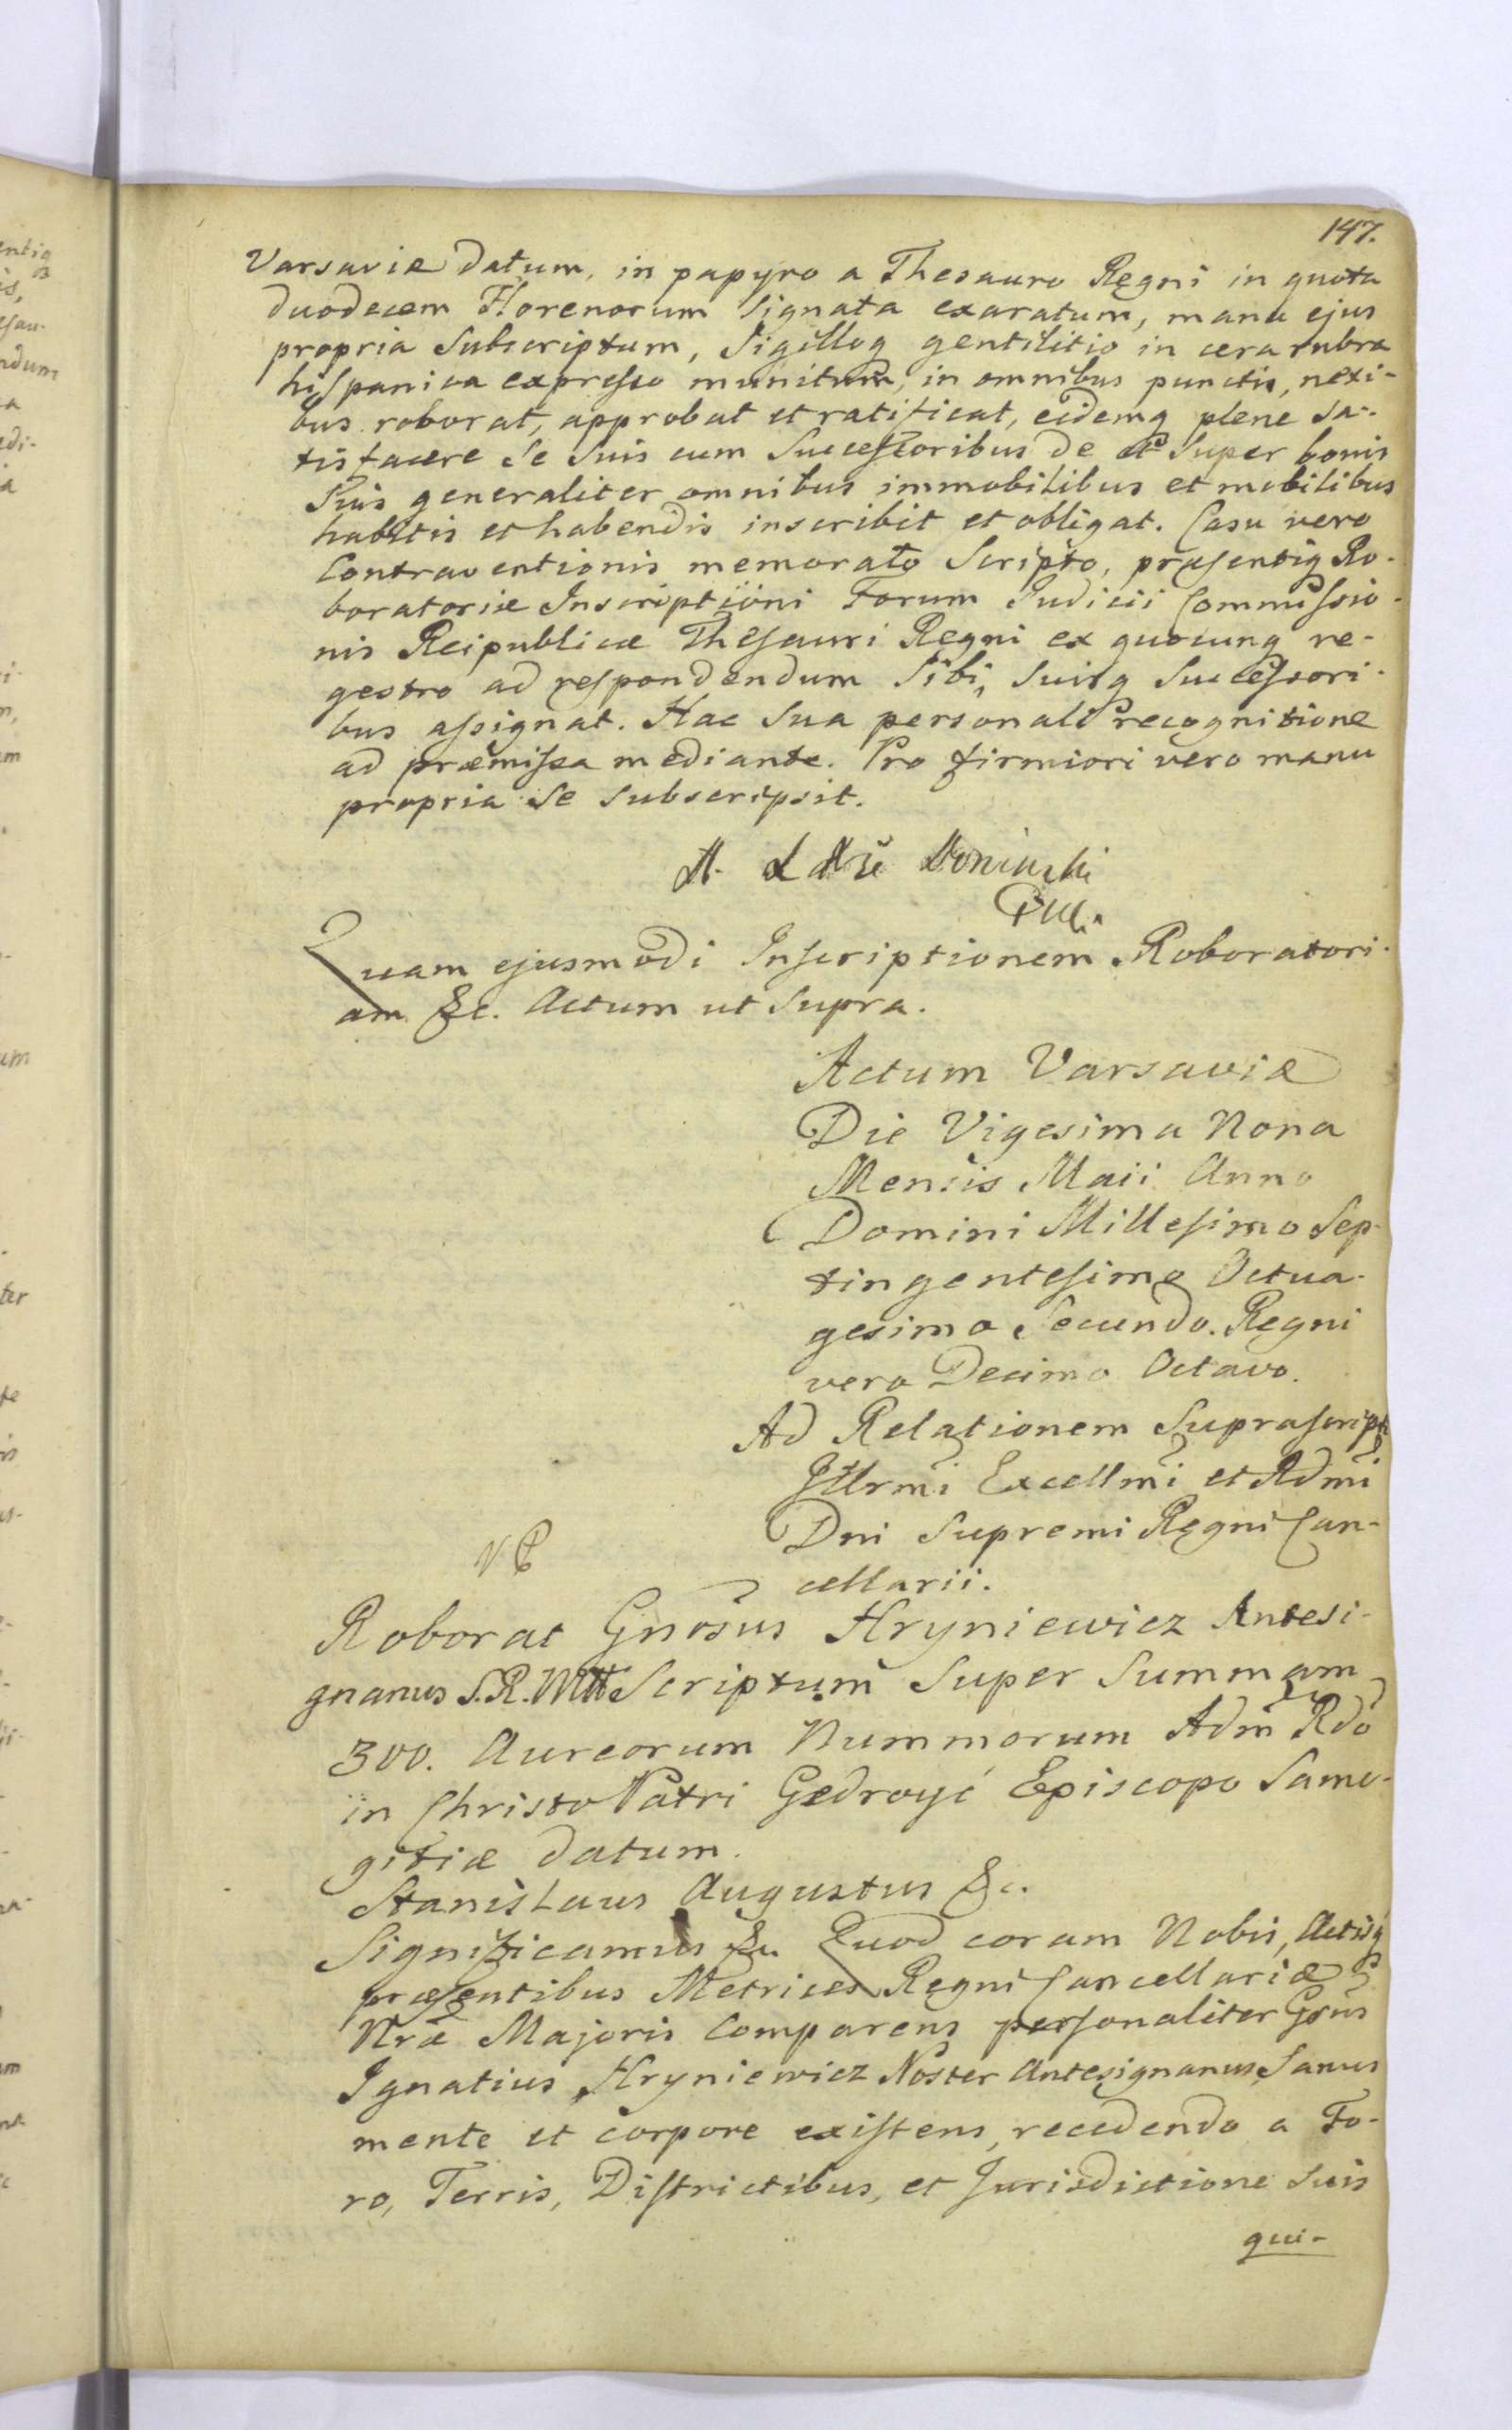 147.
Varsaviæ datum, in papyro a Thesauro Regni in quota
duodecem Florenorum signata exaratum, manu ejus
propria Subscriptum, Sigilloq gentilitio in cera rubra
hispanica expresso munitum, in omnibus punctis, nexi-
bus roborat, approbat et ratificat, eidemq plene Sa-
tisfacere Se Suis cum Successoribus de et Super bonis
Suis generaliter omnibus immobilibus et mobilibus
habitis et habendis inscribit et obligat. Casu vero
Contraventionis memorato Scripto, præsentiq Ro-
boratoriæ Inscriptioni Forum Judicii Commissio-
nis Reipublicæ Thesauri Regni ex quocunq re-
gestro ad respondendum Sibi, Suisq Successori-
bus assignat. Hac Sua personali recognitione
ad præmissa mediante. Pro firmiori vero manu
propria Se Subscripsit.
A. Poninski
Quam ejusmodi Inscriptionem Roboratori-
am &c. Actum ut Supra.
Actum Varsaviæ
Die Vigesima Nona
Mensis Maii Anno
Domini Millesimo Sep-
tingentesimo Octua-
gesimo Secundo. Regni
vero Decimo Octavo.
Ad Relationem Suprascripti
Illrmi Excellmi et Rdmi
Dni Supremi Regni Can-
cellarii.
Roborat Gnosus Hryniewicz Antesi-
gnanus S.R.Mtt Scriptum Super Summam
300. Aureorum Nummorum Adm Rdo
in Christo Patri Gedroyć Episcopo Samo-
gitiæ datum.
Stanislaus Augustus &c.
Significamus &c. Quod coram Nobis, Actisq
præsentibus Metrices Regni Cancellariæ
Nræ Majoris Comparens personaliter Gsus
Ignatius Hryniewicz Noster Antesignanus Sanus
mente et corpore existens, recedendo a Fo-
ro, Terris, Districtibus, et Jurisdictione Suis
qui-